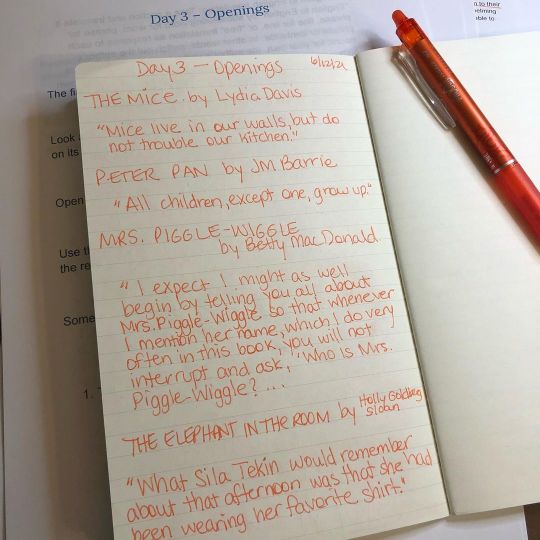 Day 3 – Openings
n to their
elming
ble to
Day 3 — Openings 6/12/21
The fi
THE MICE. by Lydia Davis
"Mice live in our walls, but do
not trouble our kitchen."
Look
on its
PETER PAN by JM Barrie
"All children, except one, grow up."
Open
MRS. PIGGLE-WIGGLE
by Betty MacDonald.
Use th
the re
"I expect I might as well
begin by telling you all about
Mrs. Piggle-Wiggle so that whenever
I mention her name, which I do very
often in this book, you will not
interrupt and ask, "Who is Mrs.
Piggle-Wiggle? ...
Some
1.
THE ELEPHANT IN THE ROOM by Holly Goldberg
Sloan
"What Sila Tekin would remember
about that afternoon was that she had
been wearing her favorite shirt."